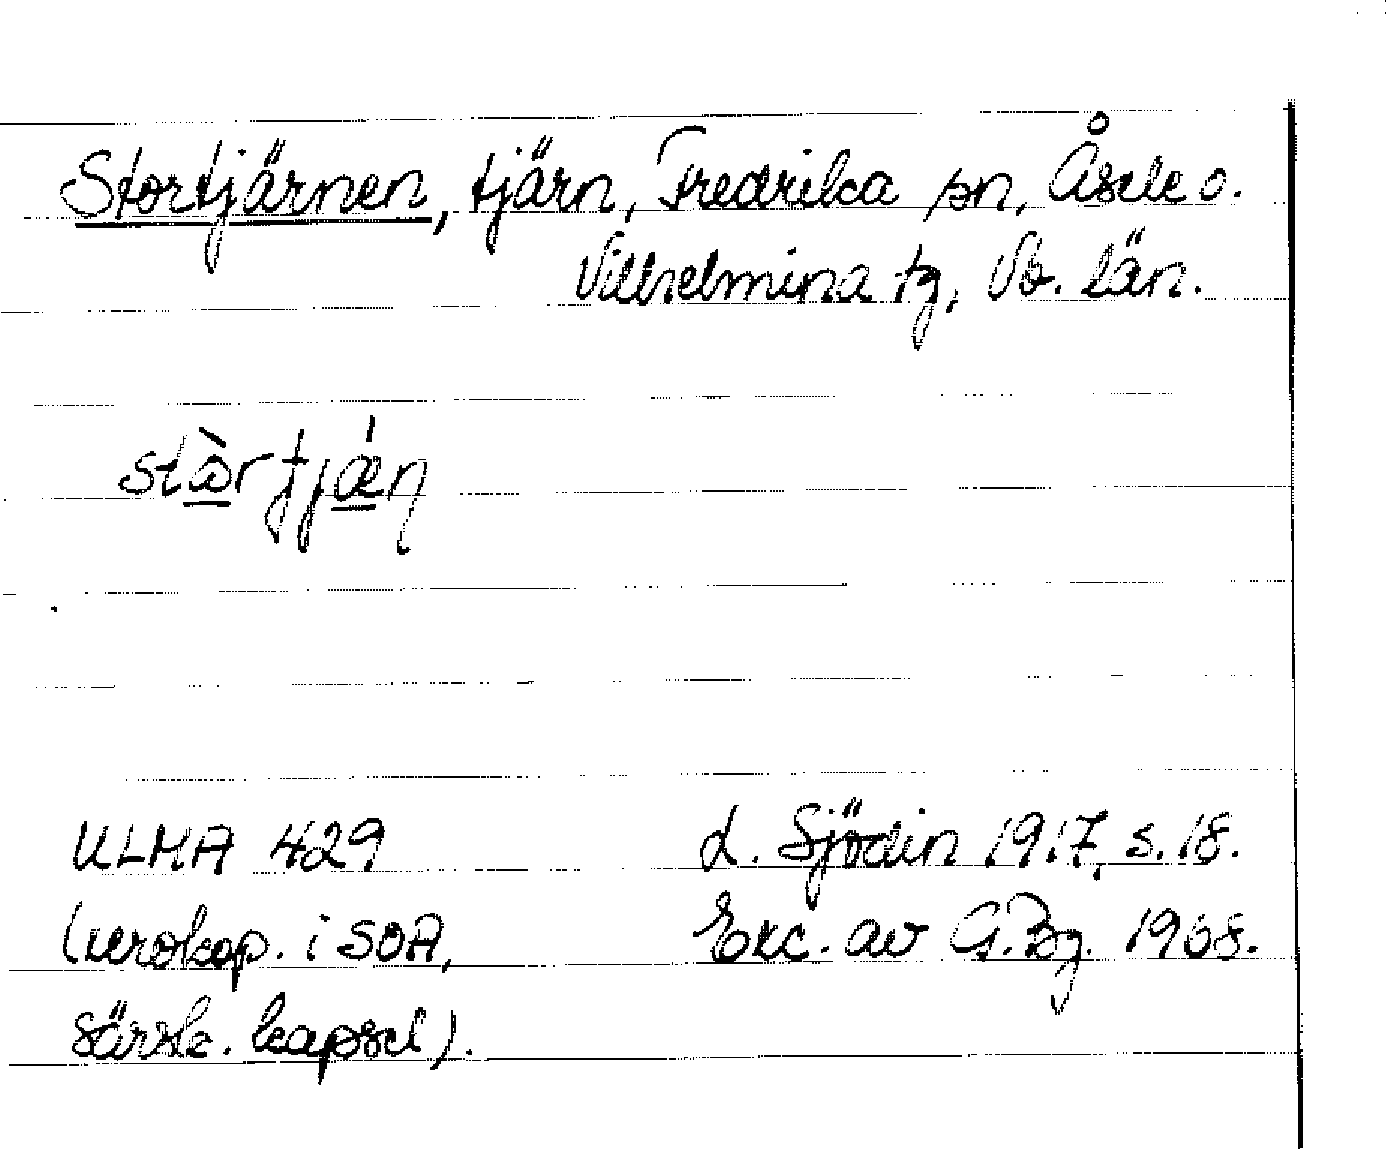 Stortjärnen, tjärn, Fredrika sn, Åsele o.
Vilhelmina tg, Vb. län.
stɷ̀r tjǽn
ULMA 429
L. Sjödin 1917, s. 18.
(xerokop. i SOA,
Exc. av G. Bg. 1968.
särsk. kapsel).